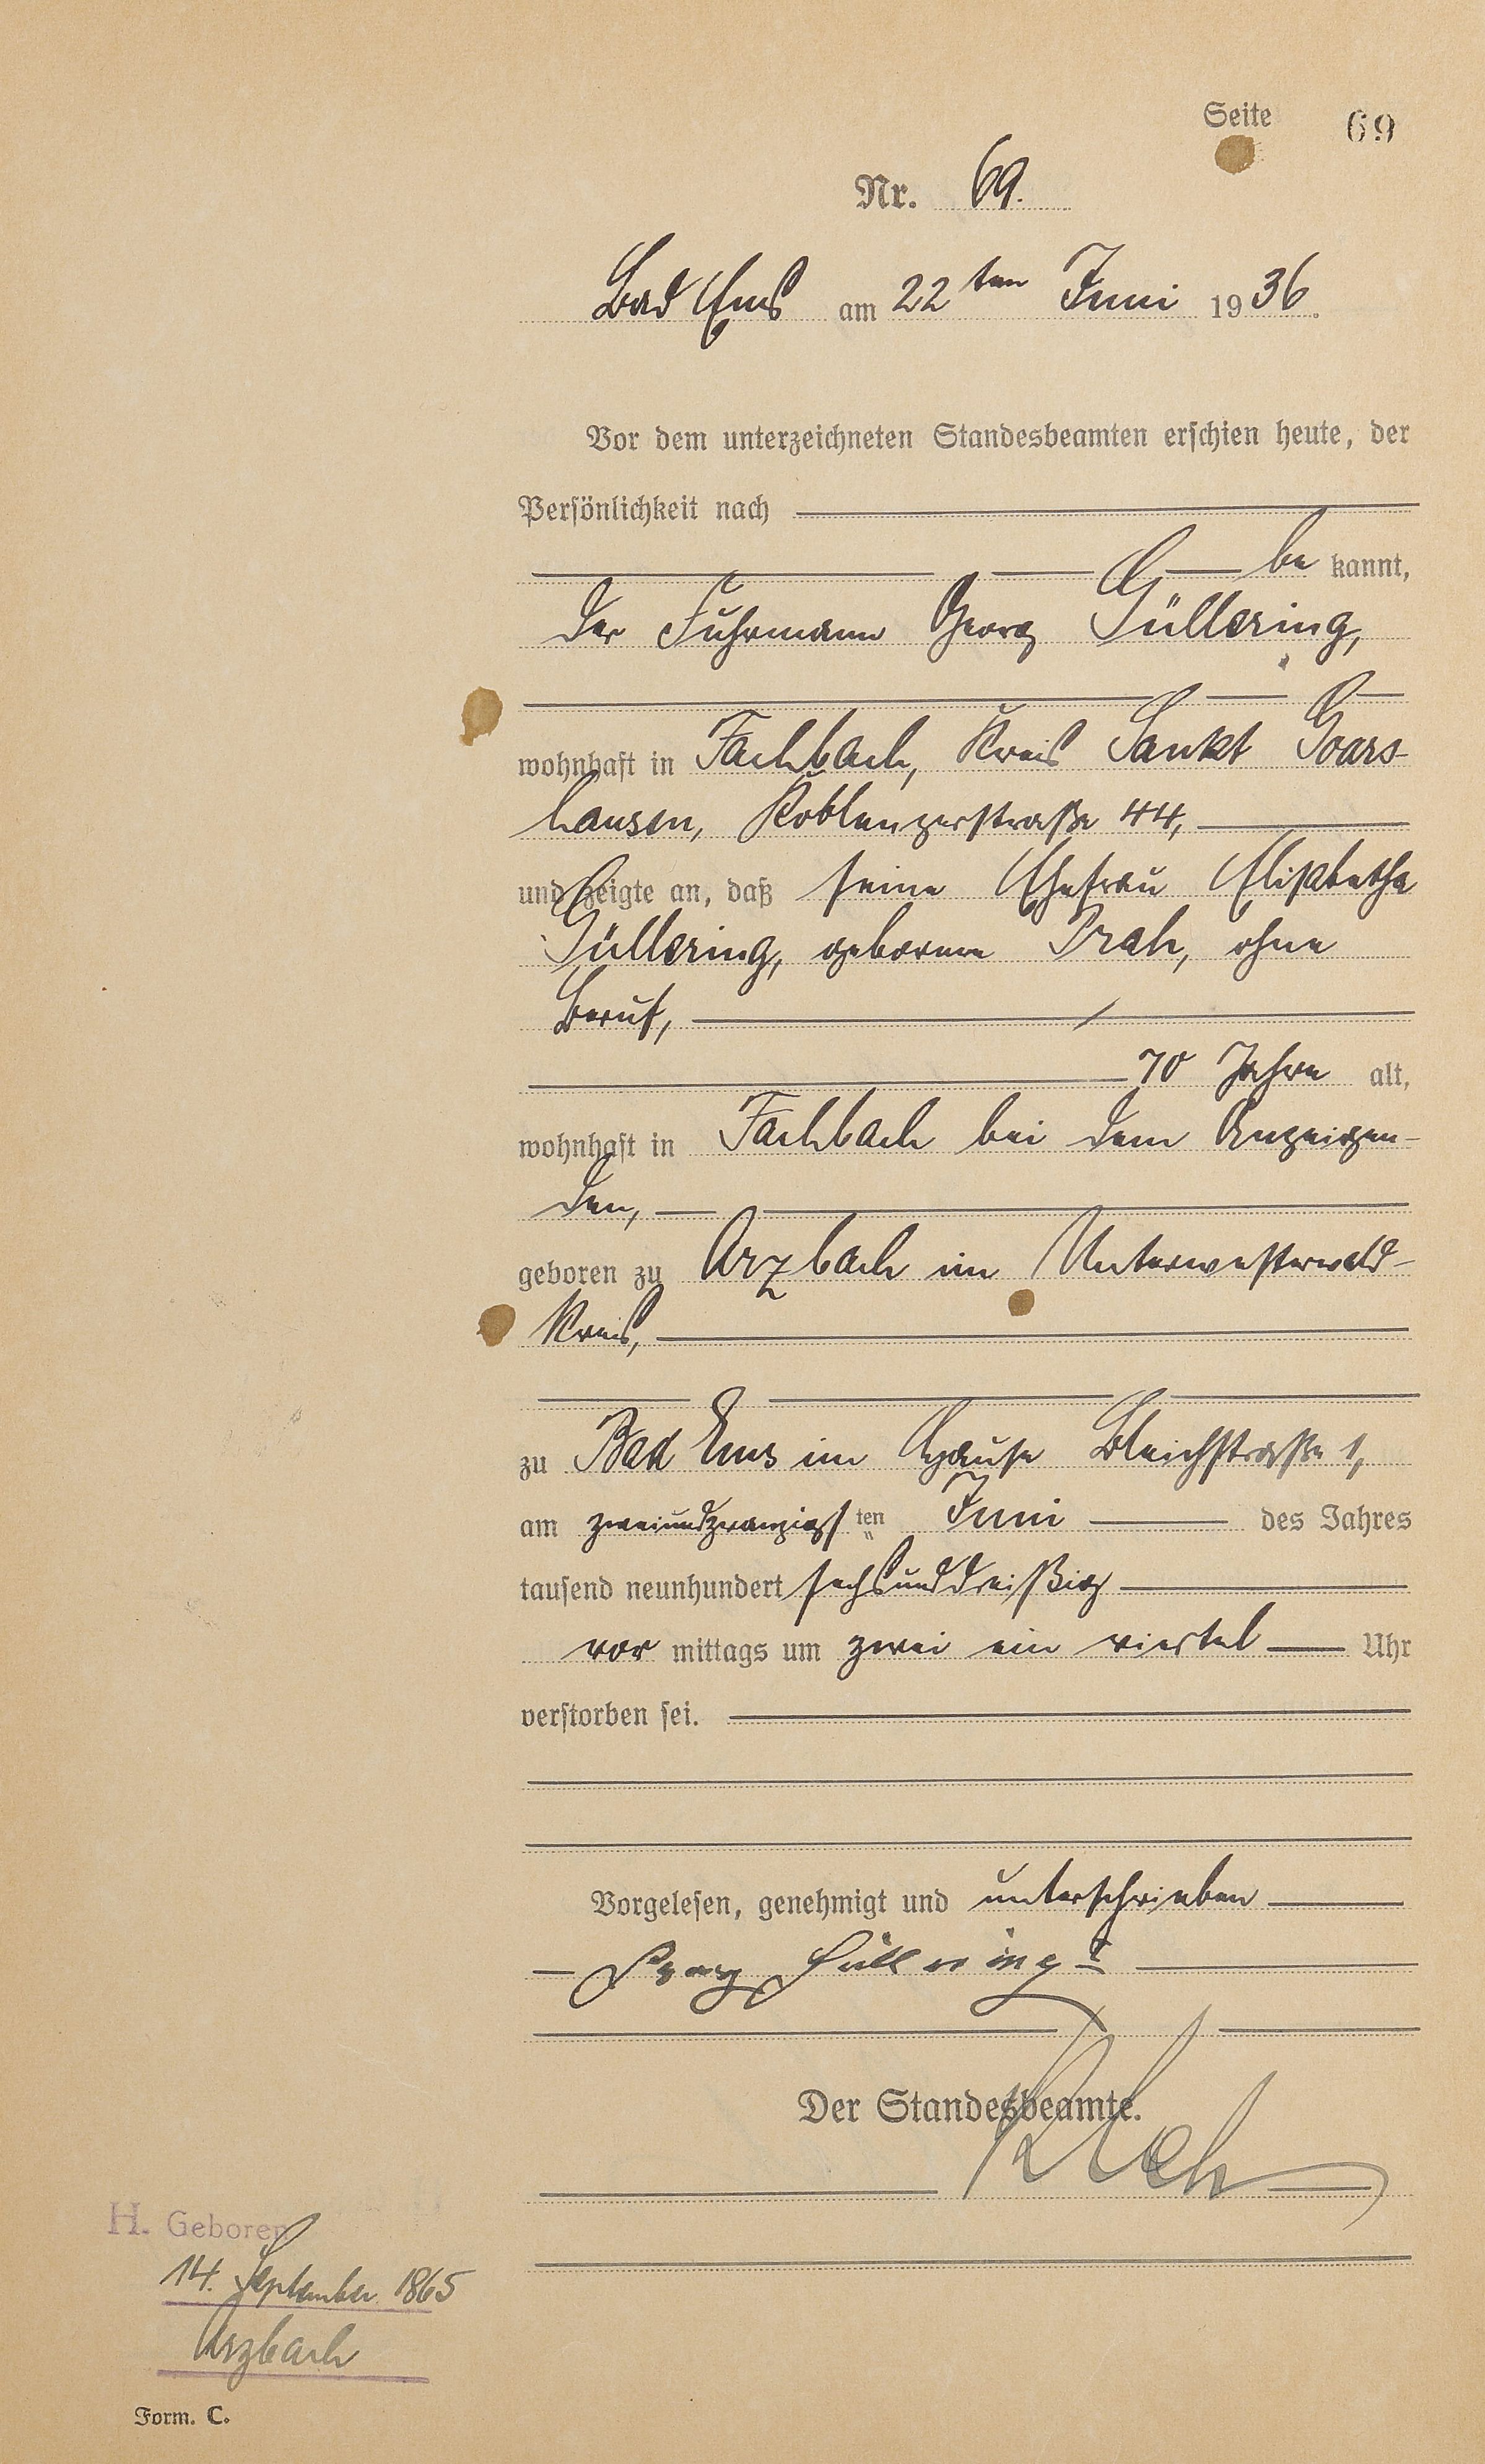 Seite 69
Nr. 69.
Bad Ems am 22ten Juni 1936.
Vor dem unterzeichneten Standesbeamten erschien heute, der
Persönlichkeit nach
be kannt,
der Fuhrmann Georg Güllering,
wohnhaft in Fachbach, Kreis Sankt Goars-
hausen, Koblenzerstraße 44,
und zeigte an, daß seine Ehefrau Elisabetha
Güllering, geborene Prah, ohne
Beruf,
70 Jahre alt,
wohnhaft in Fachbach bei dem Anzeigen-
den,
geboren zu Arzbach im Unterwesterwald-
Kreis,
zu Bad Ems im Hause Bleichstraße 1,
am zweiundzwanzigsten Juni des Jahres
tausend neunhundert sechsunddreißig
vor mittags um zwei ein viertel Uhr
verstorben sei.
Vorgelesen, genehmigt und unterschrieben
Georg Güllering
Der Standesbeamte.
H. Geboren
14. September 1865
Arzbach
Form. C.